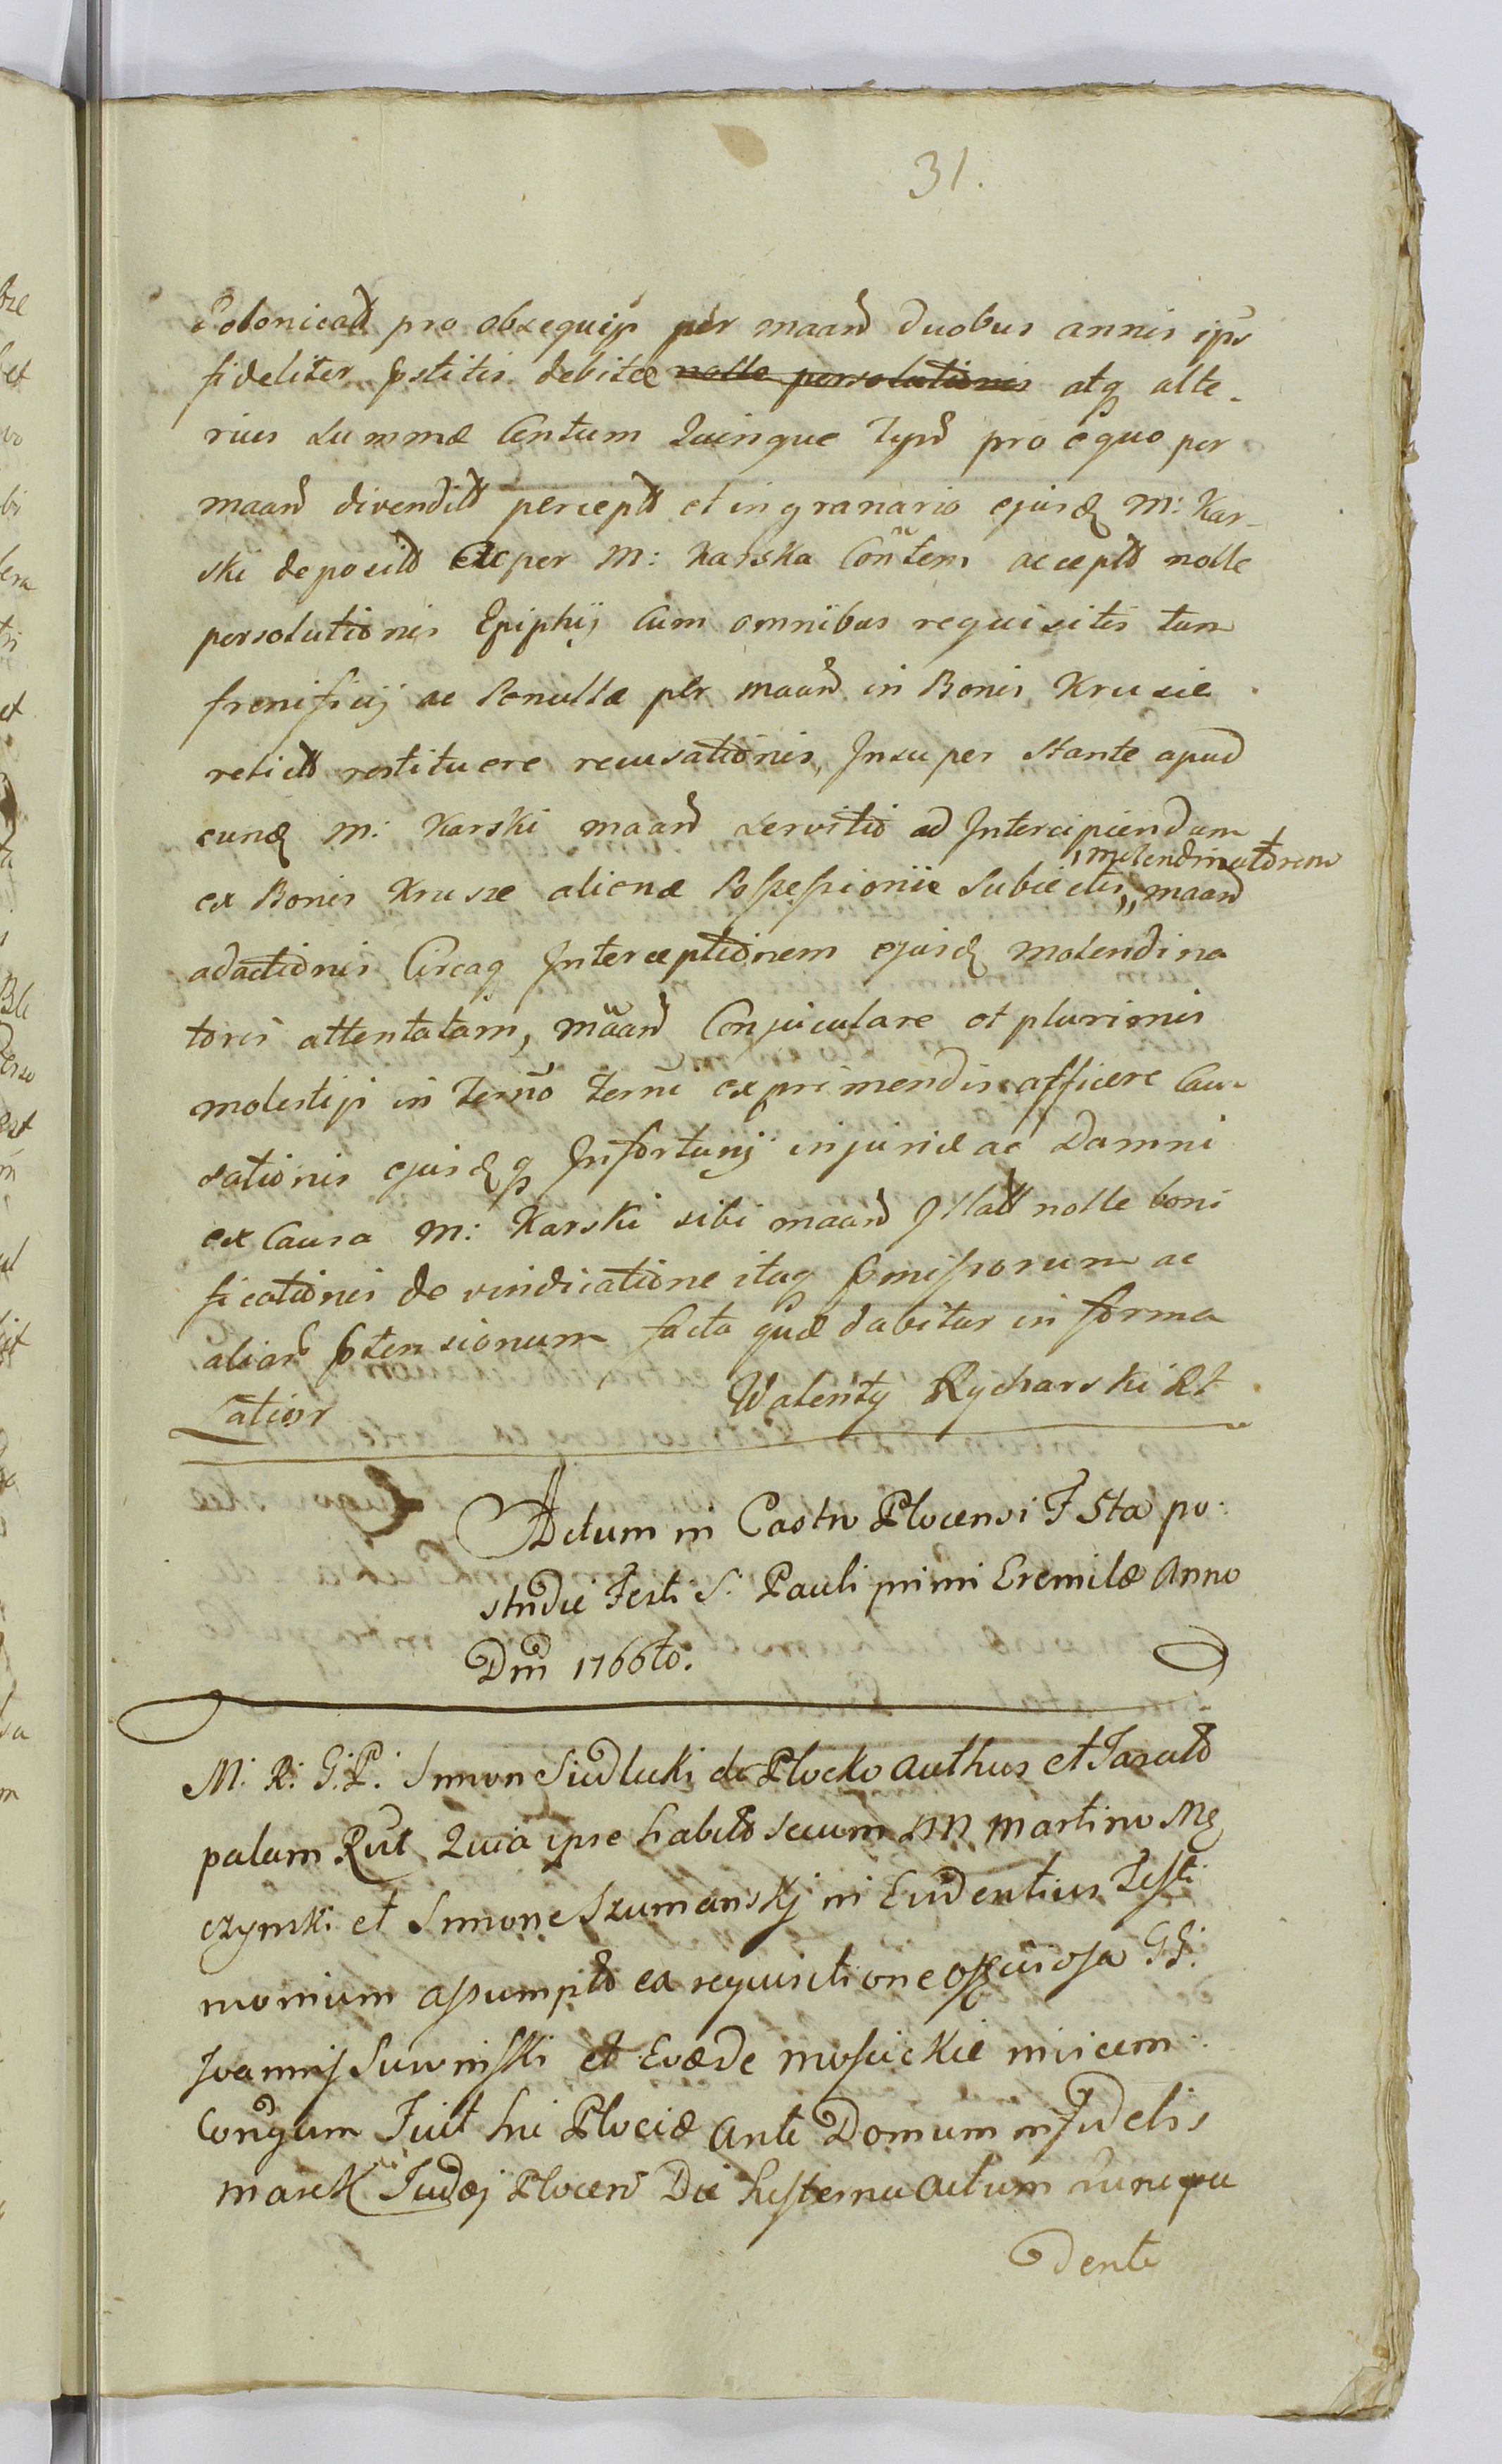 31.
Polonicall pro obsequijs per maand duobus annis ips
fideliter pstitis debitæ nolle persolutionis atq alte-
rius summæ Centum Quinque Typd pro equo per
maand divendit percept et in granario ejusd M: Kar-
ski deposit per M: Karska accept nolle
persolutionis Epiphij Cum omnibus requisitis tum
frenificij ac Penullæ per maand in Bonis Krusie
relict restituere recusationis, Insuper stante apud
eund M: Karski maand servitio ad Intercipiendum
molendinatorem
ex Bonis Krusze alienæ Possessionis Subiectis, maand
adactionis Circaq Interceptionem ejusd molendina
toris attentatam, maand Conjiculare et plurimis
molestijs in Termo Termi exprimendis afficere Cau-
sationis ejusdq Infortunij injuriæ ac Damni
ex Causa M: Karski sibi maand Illat nolle boni
ficationis de vindicatione itaq pmissorum ac
aliar ptensionum facta quæ dabitur in forma
Latior Walenty Rycharski
Actum in Castro Plocensi F 5ta po:
stridie Festi S. Pauli primi Eremitæ Anno
Dni 1766to.
M: R: G: P: Simon Siedlecki de Plocko authus et Jurat
palam Rit Quia ipse habit secum NN Martino Mę
czynski et Simone Szumanskj in Evidentius Testi
monium assumpt ea requisitione officiosa GG:
Joannis Suwinski et Evæ de Mosickie invicem
Congum Fuit hic Plociæ ante Domum infidelis
Marek Judæj Plocen Die hesterna actum
dente